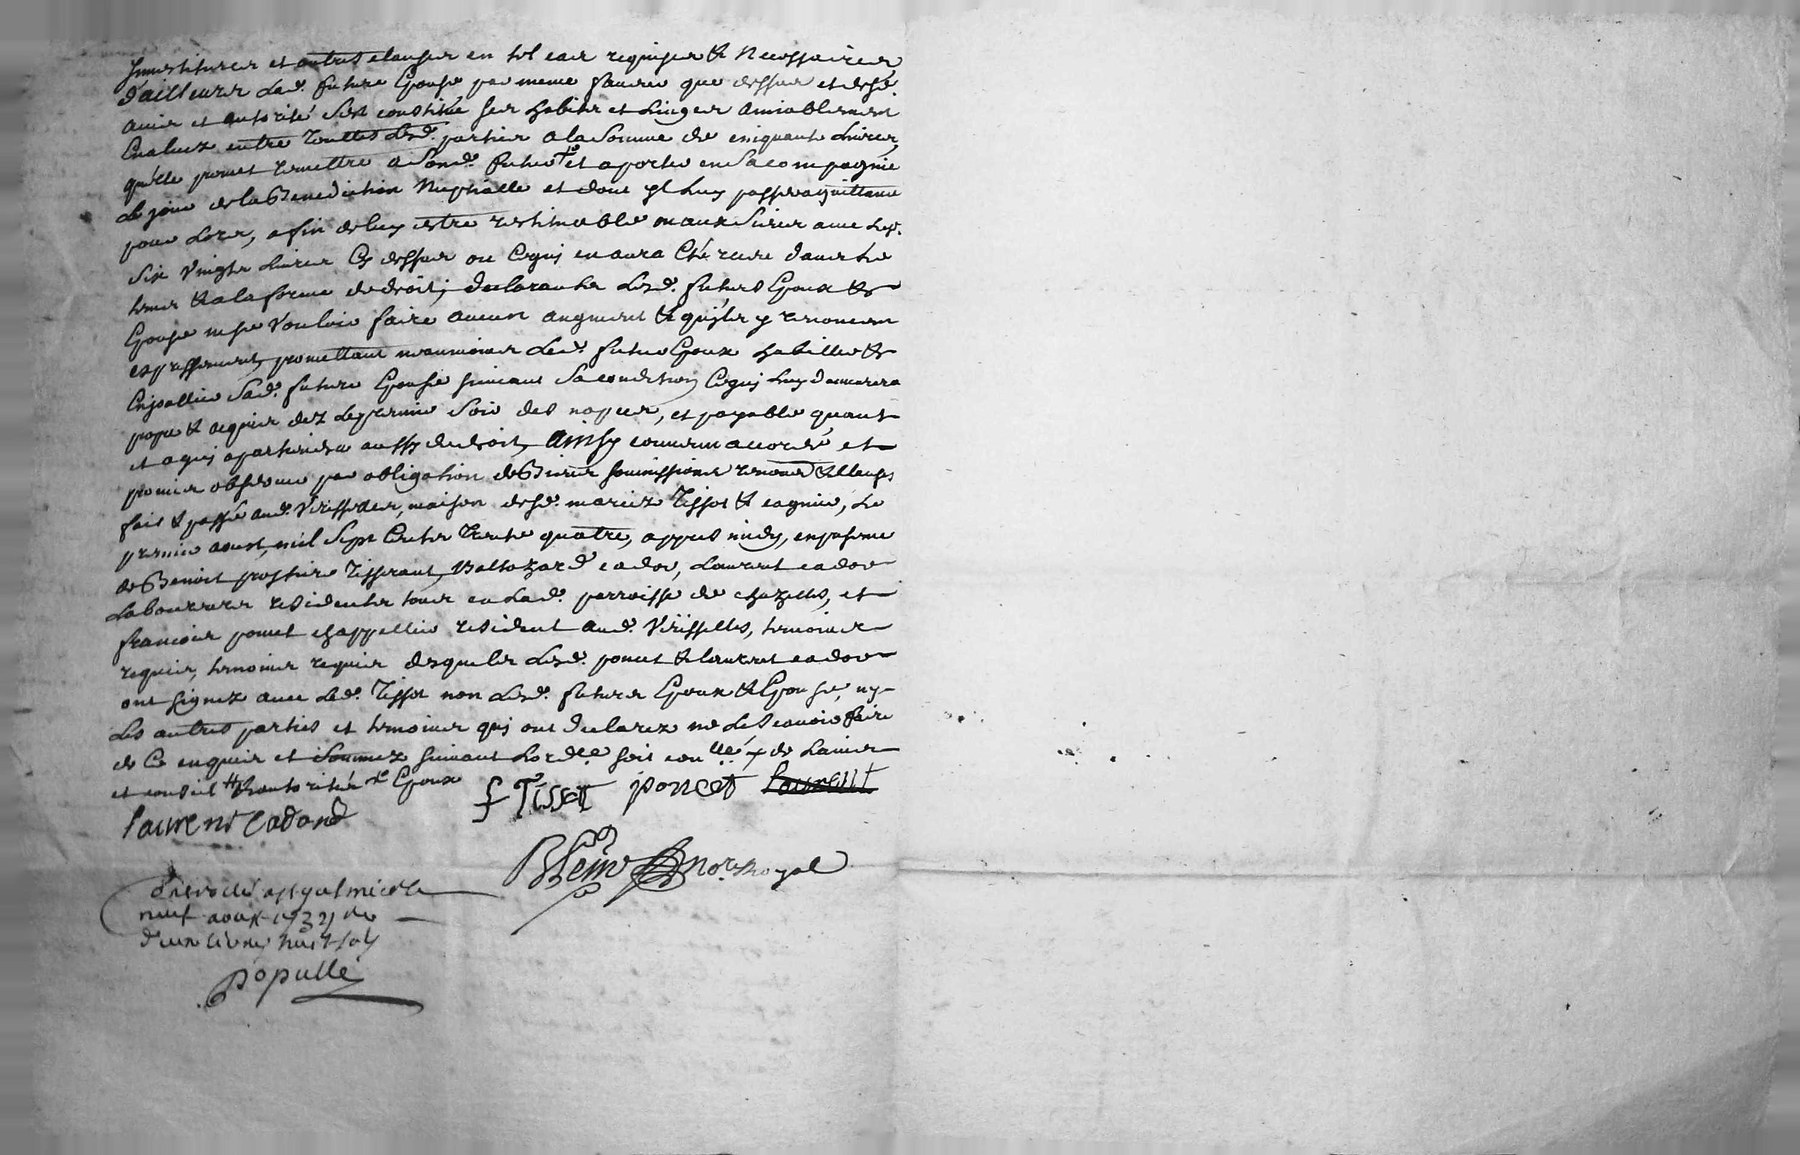 Investitures et autres clauses en tel cas requises & Necessaires
d'ailleurs lad. future Epouse par meme faveur que dessus et desd.
avis et autorité s'est constituée ses habits et linges amiablement
Evaluez entre touttes lesd. parties a la somme de cinquante livres,
qu'elle promet remettre a sond. futur et aporter en sa compagnie
le jour de la Benediction Nuptialle et dont il luy passera quittance
pour lors, afin de luy estre restituable aux avec les
six vingts livres cy dessus ou a qui en aura charge dans les
termes & a la forme de droit; declarants lesd. futurs Epoux &
Epouse ne se vouloir faire aucun augment & qu'ils y renoncent
expressement, promettant neanmoins led. futur Epoux habiller &
Enjoaller sad. future Epouse suivant sa condition, ce qui luy demeurera
propre & acquis dez le premier soir des nopces, et payable quant
et a qui apartiendra aussy de droit, Ainsy convenu accordé et
promis observer par obligation de Biens soumissions renon. & clauses
fait & passé aud. Virisselles, maison desd. mariez Tissot & cagnier, le
premier aoust, mil sept cents trente quatre, appres midy, en presence
de Benoist tisserant, Baltazard cador, Laurent cador
Laboureurs residents tous en lad. parroisse de chazelles, et
francois poncet chappellier resident aud. Virisselles, temoins
requis, temoins requis desquels lesd. poncet & laurent cador
ont signez avec led. Tissot non lesd. futurs Epoux & Epouse, ny
les autres parties et temoins qui ont declarez ne le scavoir faire
de ce enquis et sommez suivant l'ord.ce soit con.llé x de l'avis
et conseil # & autorité d. Epoux
f Tissot poncet laurent
laurent cadord
not. Royal
Controllé a st galmier le
neuf aoust 1734
d'une livre, huit sols
populle